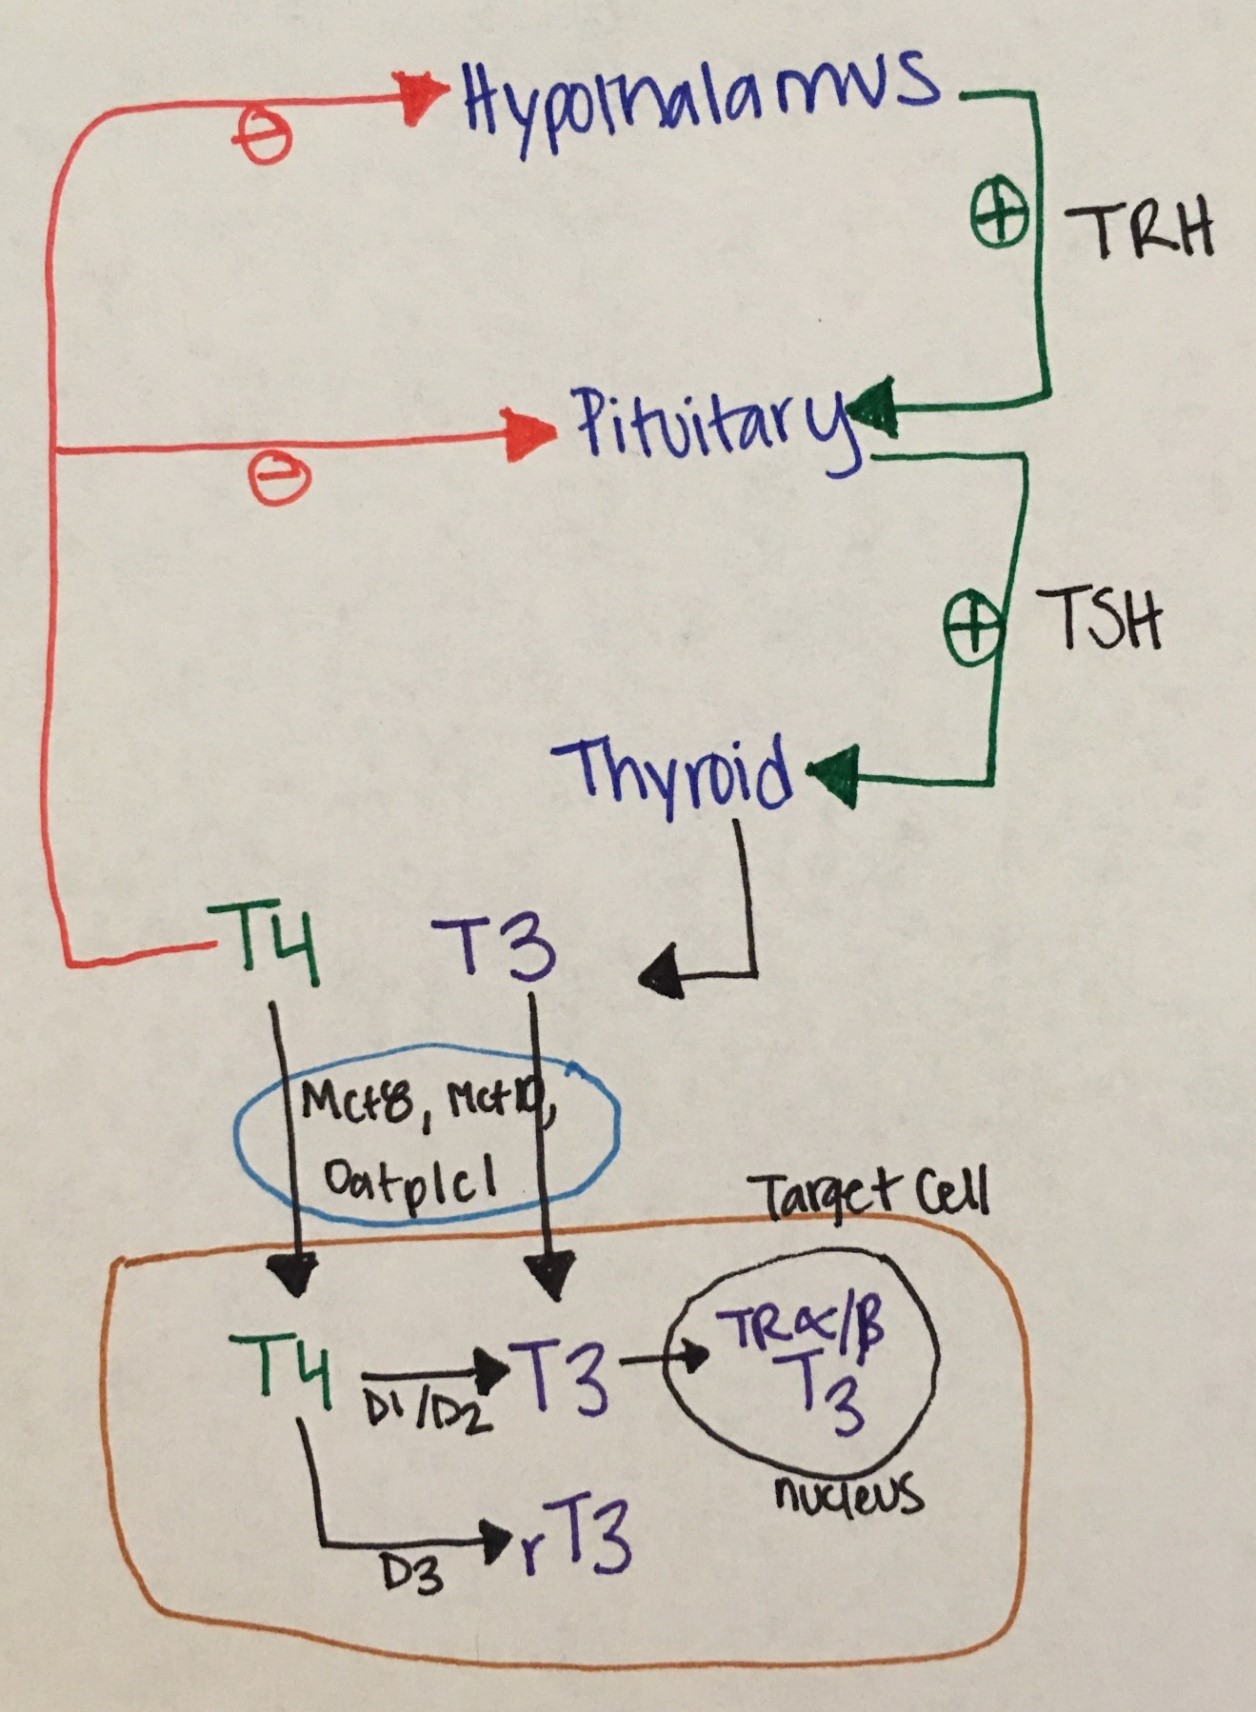 ⊖
Hypothalamus
⊕ TRH
⊖
Pituitary
⊕ TSH
Thyroid
T4 T3
Mct8, Mct10,
Oatp1c1
Target Cell
T4 D1/D2 T3
TRα/β
T3
nucleus
D3 rT3